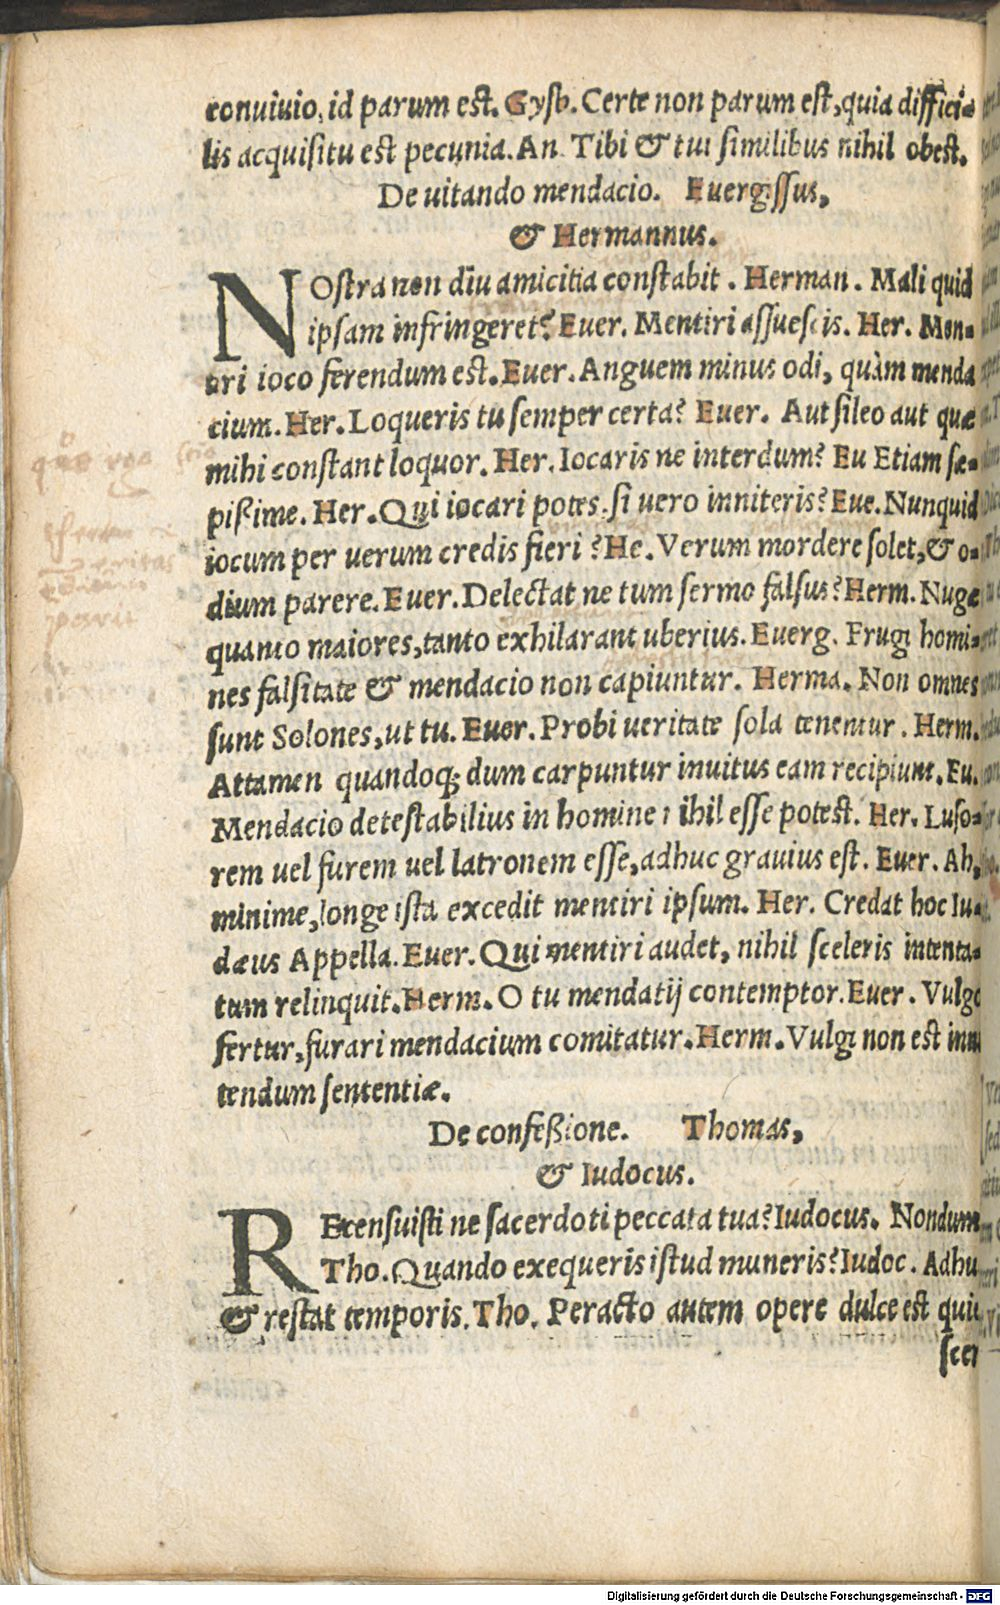 conuiuio, id parum est. Gysb. Certe non parum est, quia diffici-
lis acquisitu est pecunia. An. Tibi & tui similibus nihil obest.
De uitando mendacio. Euergissus,
& Hermannus.
NOstra non diu amicitia constabit. Herman. Mali quid
ipsam infringeret? Euer. Mentiri assuescis. Her. Mon-
ori ioco ferendum est. Euer. Anguem minus odi, quàm menda
cium. Her. Loqueris tu semper certa? Euer. Aut sileo aut quæ
mihi constant loquor. Her. Iocaris ne interdum? Eu Etiam sæ-
pißime. Her. Qui iocari potes, si uero inniteris? Eue. Nunquid
iocum per uerum credis fieri? He. Verum mordere solet, & o-
dium parere. Euer. Delectat ne tum sermo falsus? Herm. Nuge
quanto maiores, tanto exhilarant uberius. Euerg. Frugi homi-
nes falsitate & mendacio non capiuntur. Herma. Non omnes
sunt Solones, ut tu. Euer. Probi ueritate sola tenentur. Herm.
Attamen quandoq; dum carpuntur inuitus eam recipiunt. Eu.
Mendacio detestabilius in homine nihil esse potest. Her. Luso-
rem uel furem uel latronem esse, adhuc grauius est. Euer. Ah,
minime, longe ista excedit mentiri ipsum. Her. Credat hoc Iu-
dæus Appella. Euer. Qui mentiri audet, nihil sceleris intenta-
tum relinquit. Herm. O tu mendatij contemptor. Euer. Vulgo
fertur, furari mendacium comitatur. Herm. Vulgi non est inni
tendum sententiæ.
De confeßione. Thomas,
& Iudocus.
REcensuisti ne sacerdoti peccata tua? Iudocus. Nondum
Tho. Quando exequeris istud muneris? Iudoc. Adhu
& restat temporis. Tho. Peracto autem opere dulce est quie
scer
ueritas
odium
parit
Digitalisierung gefördert durch die Deutsche Forschungsgemeinschaft - DFG